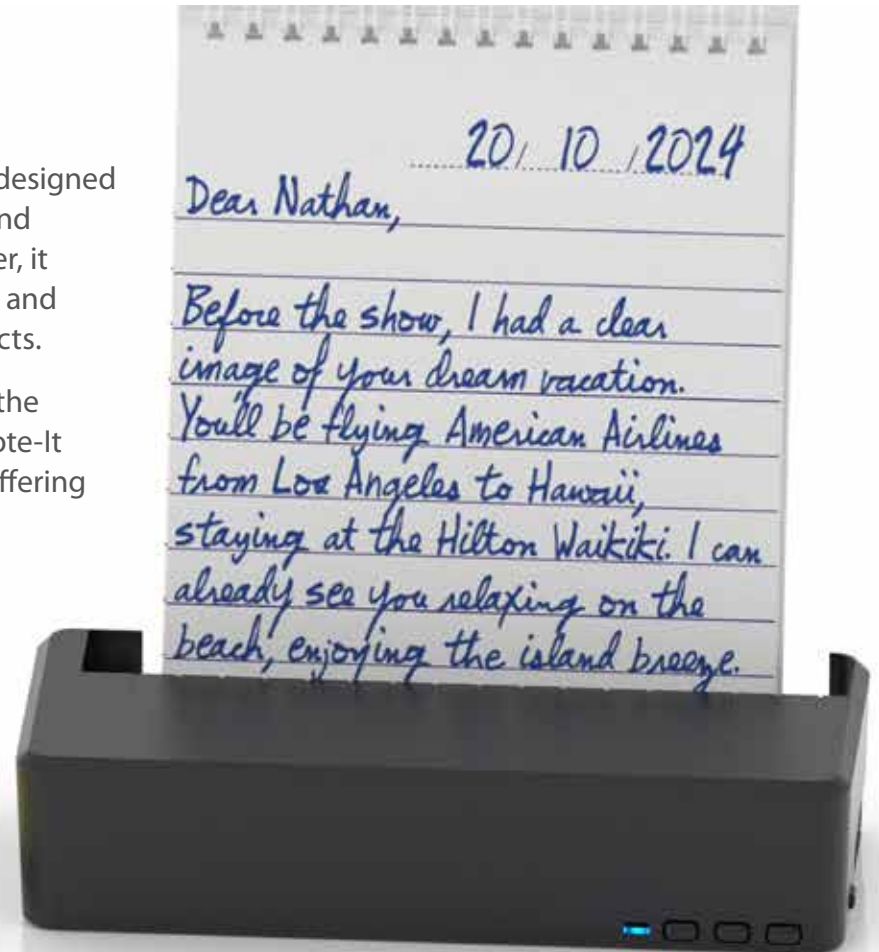 designed
nd
er, it
and
cts.
the
ote-It
ffering
20/ 10 /2024
Dear Nathan,
Before the show, I had a clear
image of your dream vacation.
You'll be flying American Airlines
from Los Angeles to Hawaii,
staying at the Hilton Waikiki. I can
already see you relaxing on the
beach, enjoying the island breeze.